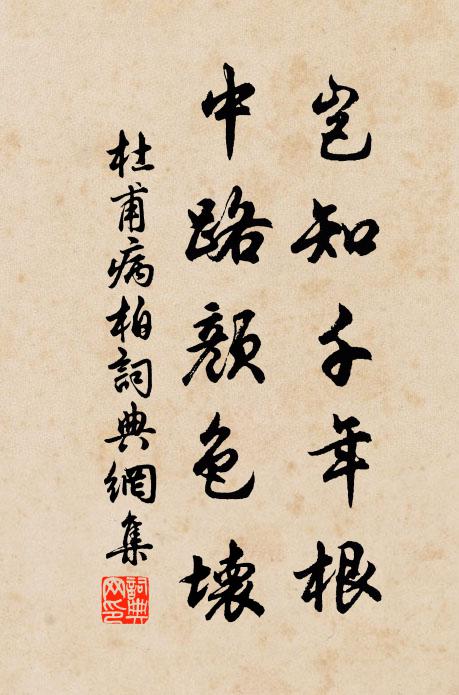 岂知千年根
中路颜色壞
杜甫病柏詞典網集
詞典網印